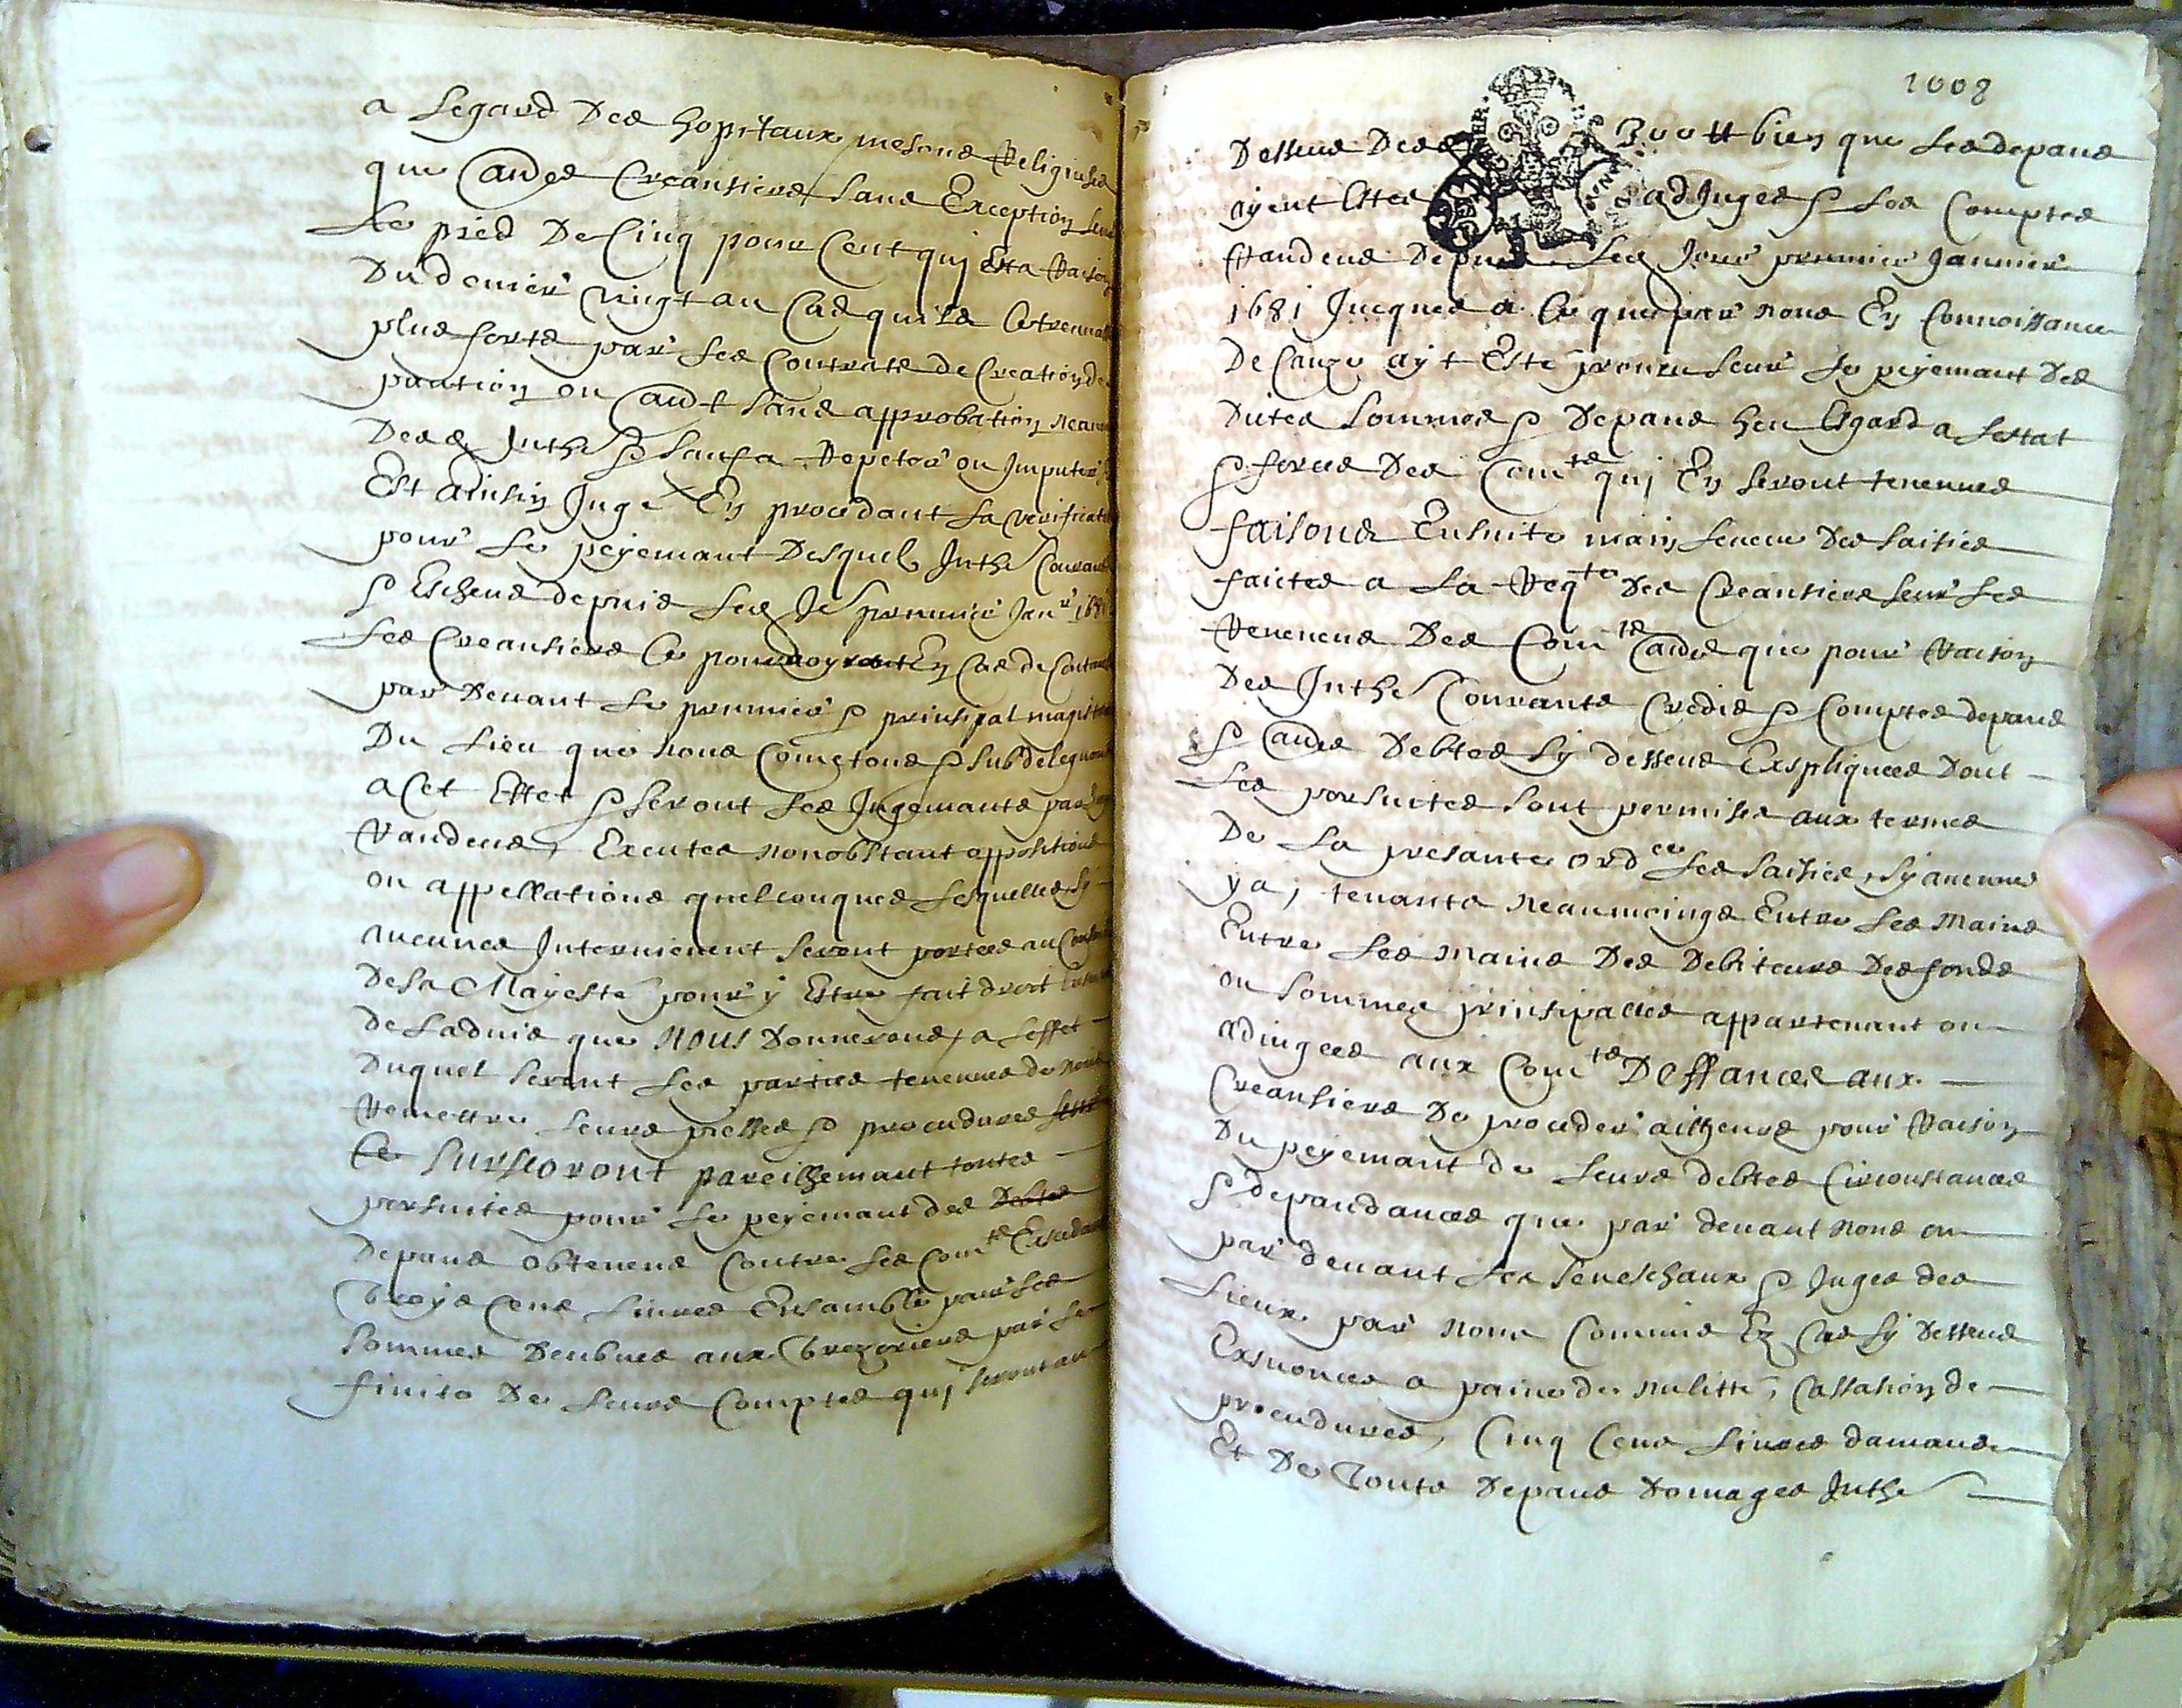 a Legard Des hopitaux mesons Religieuses
que Au^es Creansiers sans Exception seur
Le pied De Cinq pour Cent quj Est a Raison
Du denier vingt au Cas quils
plus forts par Les Contrats de Creation de
ou aut sans approbation
Desd Inth^s & sauf a Repeter ou Imputer
Est ainsin Jugé En procédant La verificatn
pour Le peyemant Desquels Inth^s Courants
& Escheus depuis Led Jo^r premier Jan^er 168
Les Creansiers Ce pourvoyront En Cas de Contan
par Devant Le premier & prinsipal magistra
Du Lieu que nous Cometons & subdeleguons
a Cet Effet & seront Les Jugemants par
Randeus, Executes nonobstant oppositions
ou appellations quelconques Lesquelles sy
aucunes Intervienent seront portees au Conseil
De sa Mayesté pour y Estre fait droit
de Ladvis que nous Donnerons, a Leffet
Duquel seront Les parties tenenues de nous
Remettre Leurs piesses & procedures
Ce surseoront pareilhemant toutes
porsuites pour Le peyemant des Debtes
Depans obteneus Contre Les Com^tes Exsedant
Troys Cens Livres Ensamble pour Les
sommes Deubues aux Trezoriers par Le
finito De Leurs Comptes quj seront au
1008
Dessus Desd 300 tt bien que Les depans
ayent Estes adJuges & Les Comptes
Randeus Depuis Led Jour premier Janvier
1681 Jucques a Ce que par nous En Connoissance
De Cauze ayt Esté proveu seur Le peyemant Des
Dites sommes & Depans heu Esgard a Lestat
& forces Des Com^tes quj En seront tenenues
faisons Ensuite main Leveue Des saisies
faictes a La Req^te Des Creansiers seur Les
Reveneus Des Com^tes Au^es que pour Raison
Des Inth^s Courants Credis & Comptes depans
& Au^es Debtes sy dessus Expliquees Dont
Les porsuites sont permises aux termes
De La presante ord^ce Les saisies, sy aucunes
ya, tenants neaumoings Entre Les Mains
Entre Les mains Des Debiteurs Des fonds
ou sommes prinsipalles appartenant ou
adiugees aux Com^tes Deffances aux
Creansiers De proceder ailheurs pour Raison
Du peyemant de Leurs debtes Circonstances
& depandances que par devant nous ou
par devant Les seneschaux & Juges des
Lieux par nous Commis Ez Cas sy Dessus
Exnonces a paine de nulitté, Cassation de
procedures, Cinq Cens Livres damande
Et De Touts Depans Domages Inth^s